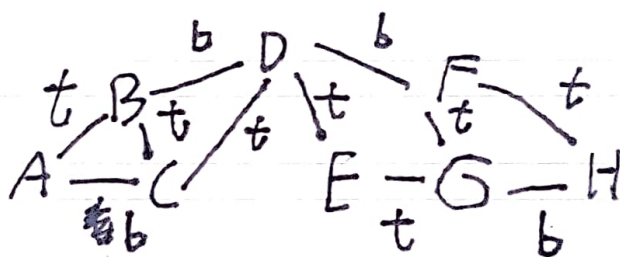 b D b
t B t t t F t t
A C E G H
b t b